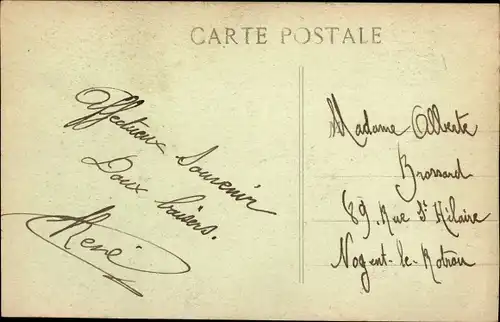 CARTE POSTALE
Affectueux Souvenir
Doux baisers.
René
Madame Alberte
Brossard
89. Rue St Hilaire
Nogent-le-Rotrou